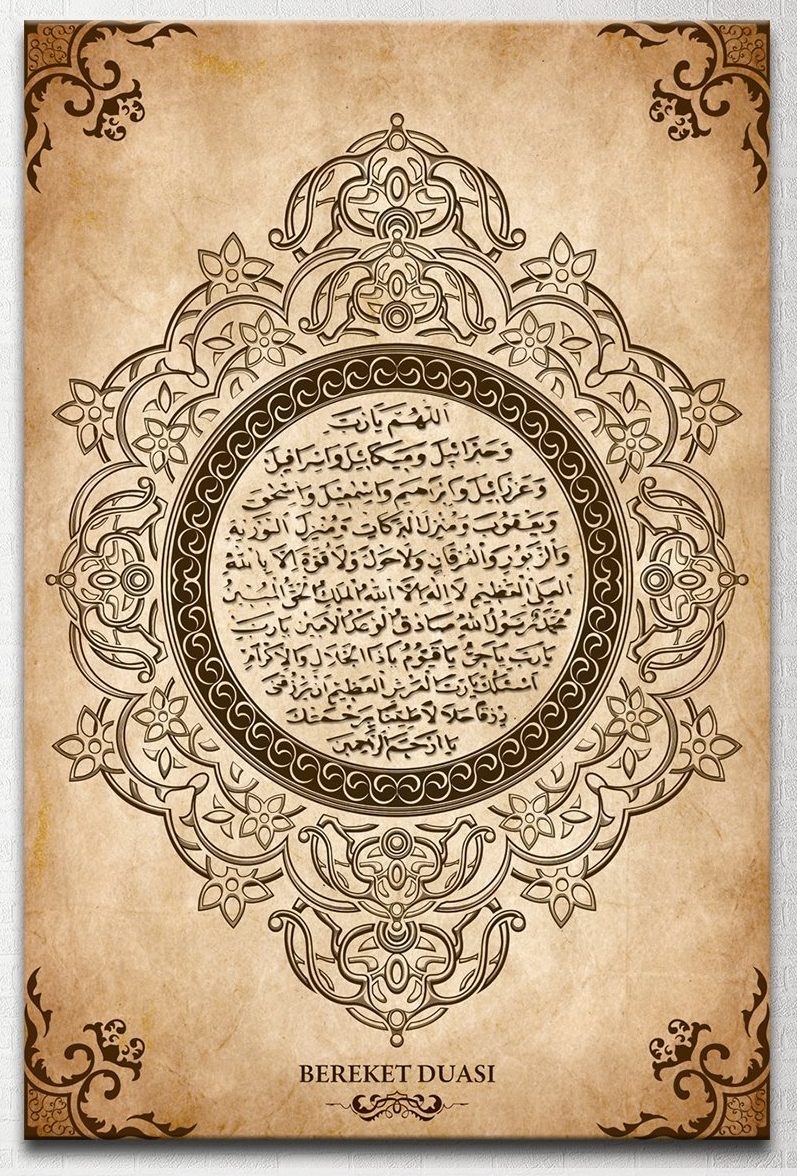 اللهم يا رب
وجبرائيل وميكائيل واسرافيل
وعزرائيل وابراهيم واسمعيل واسحق
ويعقوب ومنزل البركات ومنزل التورية
والزبور والفرقان ولا حول ولا قوة الا بالله
العلى العظيم لا اله الا الله الملك الحق المبين
محمد رسول الله صادق الوعد الامين يا رب
يا رب يا حى يا قيوم يا ذا الجلال والاكرام
اسئلك يا رب العرش العظيم ان ترزقنى
رزقا حلالا طيبا برحمتك
يا ارحم الراحمين
BEREKET DUASI